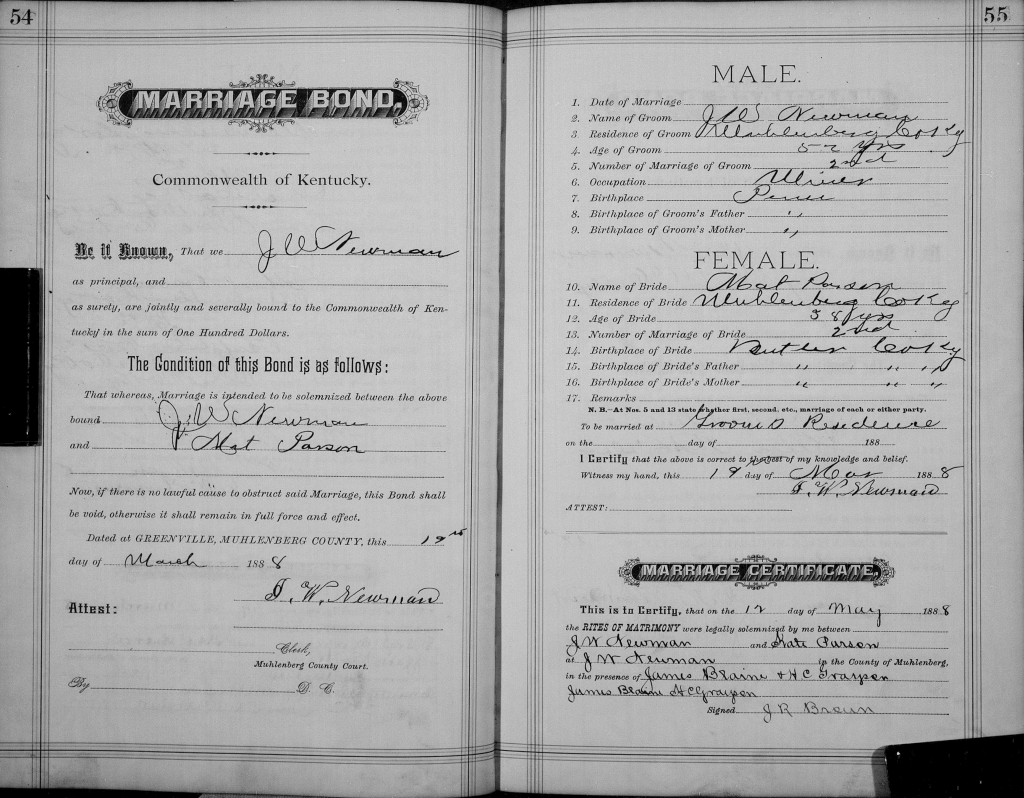 54
MARRIAGE BOND,
Commonwealth of Kentucky.
Be it Known, That we J W Newman
as principal, and
as surety, are jointly and severally bound to the Commonwealth of Ken-
tucky in the sum of One Hundred Dollars.
The Condition of this Bond is as follows:
That whereas, Marriage is intended to be solemnized between the above
bound J W Newman
and Mat Parson
Now, if there is no lawful cause to obstruct said Marriage, this Bond shall
be void, otherwise it shall remain in full force and effect.
Dated at GREENVILLE, MUHLENBERG COUNTY, this
day of March 1888
J. W. Newman
Attest:
Clerk,
Muhlenberg County Court.
By D. C.
55
MALE.
1. Date of Marriage
2. Name of Groom J W Newman
3. Residence of Groom Muhlenberg Co Ky
4. Age of Groom 52 yrs
5. Number of Marriage of Groom 2nd
6. Occupation Miner
7. Birthplace Penn
8. Birthplace of Groom's Father "
9. Birthplace of Groom's Mother "
FEMALE.
10. Name of Bride Mat Parson
11. Residence of Bride Muhlenberg Co Ky
12. Age of Bride 38 yrs
13. Number of Marriage of Bride 2nd
14. Birthplace of Bride Butler Co Ky
15. Birthplace of Bride's Father " " "
16. Birthplace of Bride's Mother " " "
17. Remarks
N. B.—At Nos. 5 and 13 state whether first, second, etc., marriage of each or either party.
To be married at Grooms Residence
on the day of 188
I Certify that the above is correct to the best of my knowledge and belief.
Witness my hand, this day of Mar 1888
J. W. Newman
ATTEST:
MARRIAGE CERTIFICATE.
This is to Certify, that on the 12 day of May 1888
the RITES OF MATRIMONY were legally solemnized by me between
J W Newman and Parson
at J W Newman in the County of Muhlenberg,
in the presence of James Blaine & H C Grayson
James Blaine H C Grayson
Signed J R